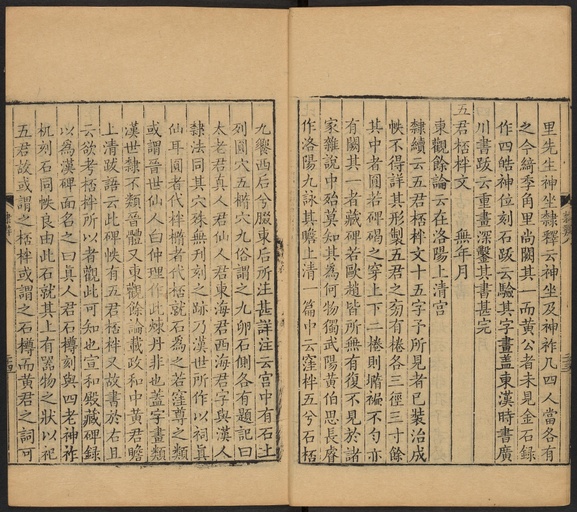 里先生神坐隸釋云神坐及神祚几四人當各有
之今綺季角里尚闕其一而黃公者未見金石錄
作四皓神位刻石跋云驗其字畫蓋東漢時書廣
川書跋云重畫深鑿其書甚完
五君桮柈文 無年月
東觀餘論云在洛陽上清宮
隸續云五君桮柈文十五字予所見者已裝治成
帙不得詳其形製五君之旁有棬各三徑三寸餘
其中者圓若碑碣之穿上下二棬則橢褊不勺亦
有闕其一者藏碑若歐趙皆所無有復不見於諸
家雜說中殆莫知其為何物獨武陽黃伯思長睿
作洛陽九詠其瞻上清一篇中云窪柈五兮石桮
九饗西后兮服東后所注甚詳注云宮中有石土
列圓穴五橢穴九俗謂之九卵石側各有題記曰
太老君真人君仙人君東海君西海君字與漢人
隸法同其穴殊無刋刻之跡乃漢世所作以祠真
仙耳圓者代柈橢者代桮就石為之若窪尊之類
或謂晉世仙人白仲理作此煉丹非也蓋字畫類
漢世隸不類晉體又東觀餘論載政和中黃君瞻
上清跋語云此碑帙有五君桮柈又故書於右且
云欲考桮柈所以者觀此可知也宣和殿藏碑録
以為漢碑面名之曰眞人君石樽刻與四老神祚
机刻石同帙良由此石就其上有器物之狀以祀
五君故或謂之桮柈或謂之石樽而黃君之詞可